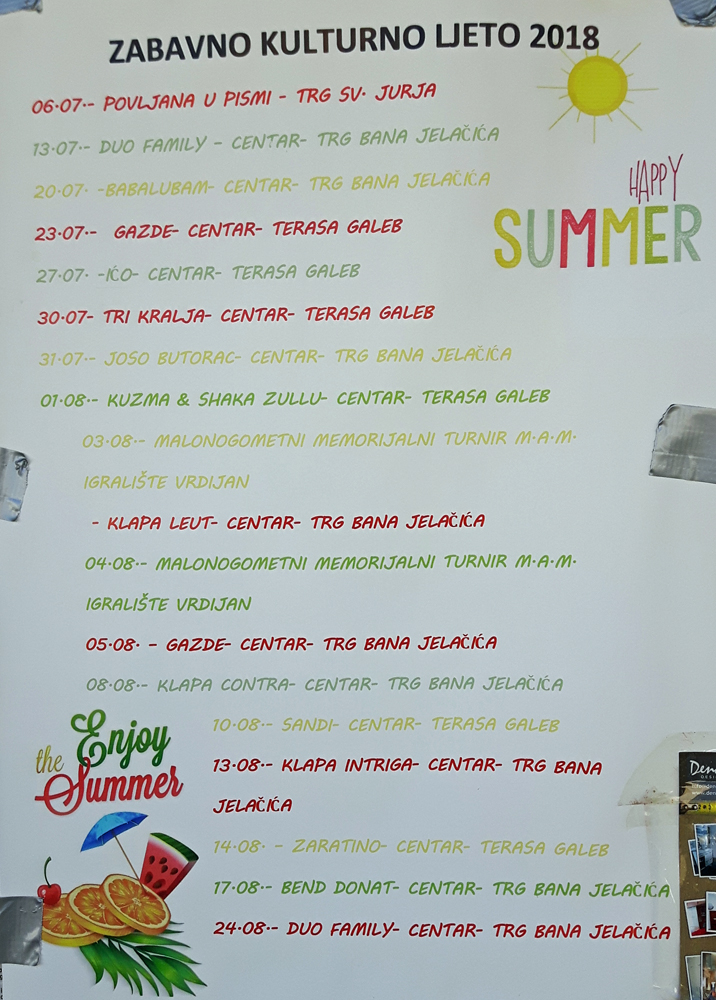 ZABAVNO KULTURNO LJETO 2018
06.07.- POVLJANA U PISMI - TRG SV. JURJA
13.07.- DUO FAMILY - CENTAR- TRG BANA JELAČIĆA
20.07. -BABALUBAM- CENTAR- TRG BANA JELAČIĆA
HAPPY
SUMMER
23.07.- GAZDE- CENTAR- TERASA GALEB
27.07. -IĆO- CENTAR- TERASA GALEB
30.07- TRI KRALJA- CENTAR- TERASA GALEB
31.07.- JOSO BUTORAC- CENTAR- TRG BANA JELAČIĆA
01.08.- KUZMA & SHAKA ZULLU- CENTAR- TERASA GALEB
03.08.- MALONOGOMETNI MEMORIJALNI TURNIR M.A.M.
IGRALIŠTE VRDIJAN
- KLAPA LEUT- CENTAR- TRG BANA JELAČIĆA
04.08.- MALONOGOMETNI MEMORIJALNI TURNIR M.A.M.
IGRALIŠTE VRDIJAN
05.08. - GAZDE- CENTAR- TRG BANA JELAČIĆA
08.08.- KLAPA CONTRA- CENTAR- TRG BANA JELAČIĆA
10.08.- SANDI- CENTAR- TERASA GALEB
Enjoy
the
Summer
13.08.- KLAPA INTRIGA- CENTAR- TRG BANA
JELAČIĆA
14.08. - ZARATINO- CENTAR- TERASA GALEB
17.08.- BEND DONAT- CENTAR- TRG BANA JELAČIĆA
24.08.- DUO FAMILY- CENTAR- TRG BANA JELAČIĆA